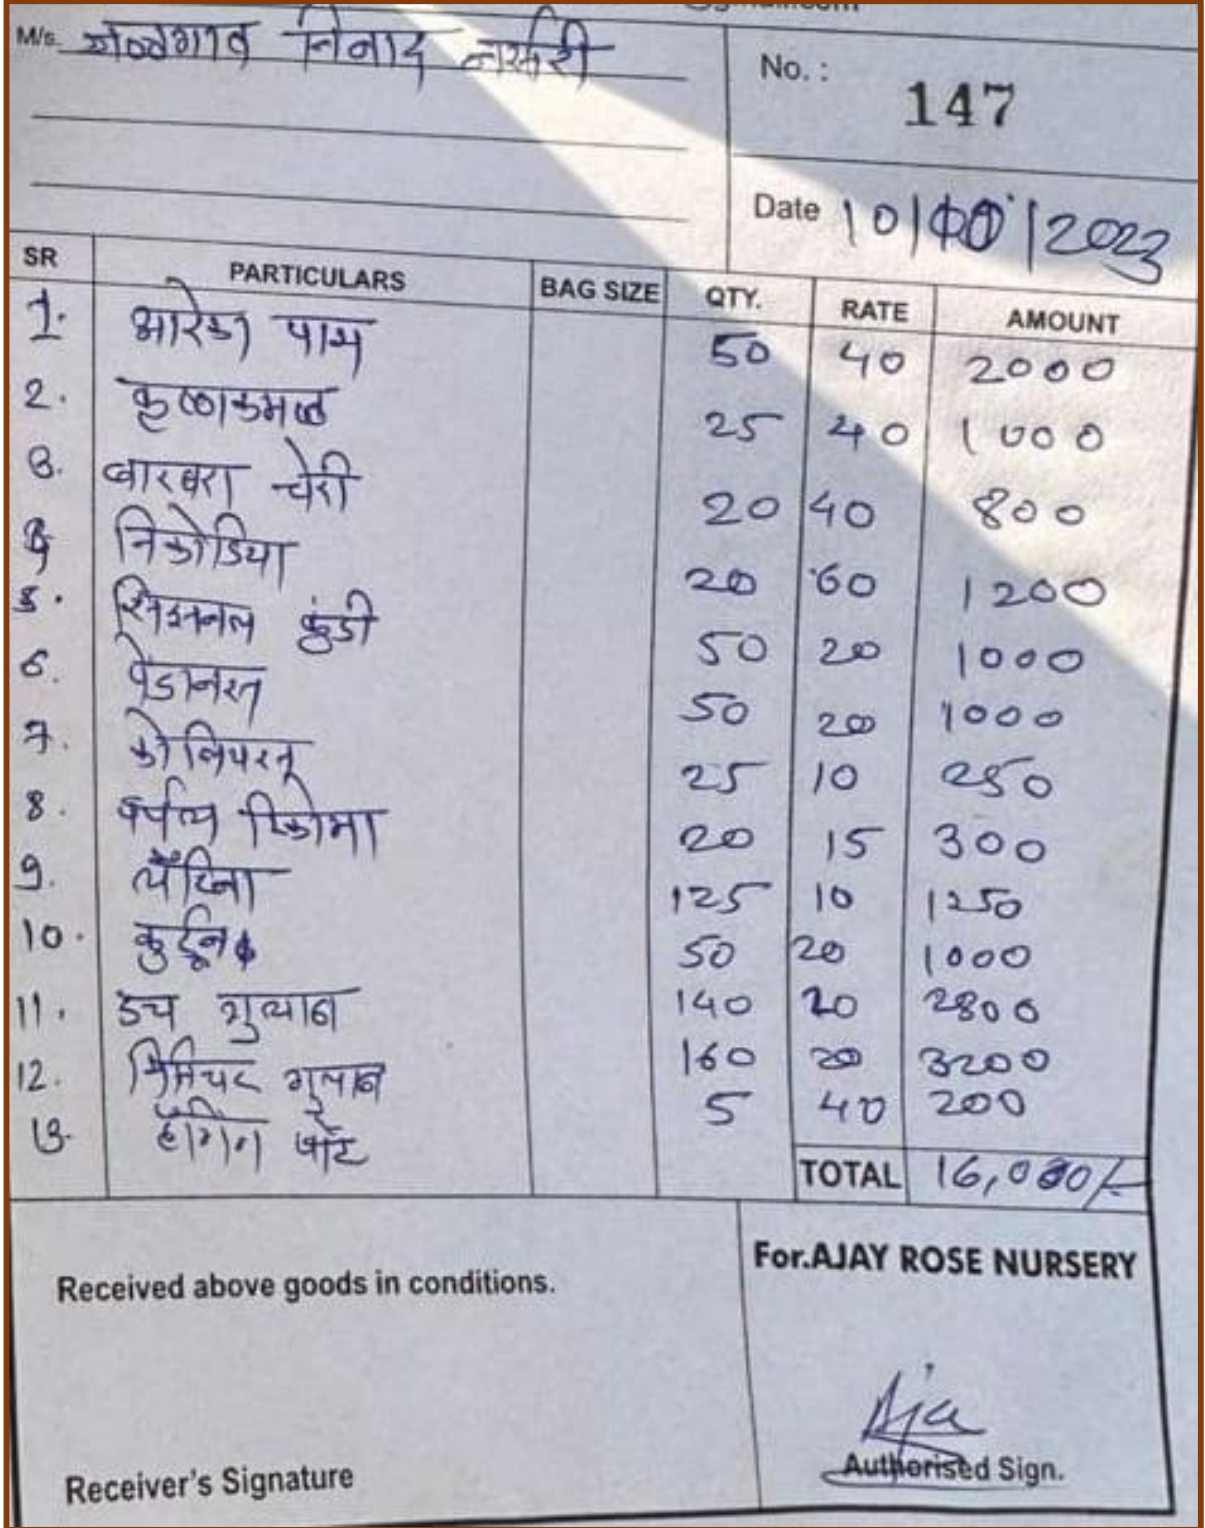 M/s. जळगाव निनाद नर्सरी
No. : 147
Date 10/10/2023
SR PARTICULARS BAG SIZE QTY. RATE AMOUNT
1. आरेका पाम 50 40 2000
2. कृष्णकमळ 25 40 1000
3. बारबरा चेरी 20 40 800
4 निकोडिया 20 60 1200
5. सिंगनल कुंडी 50 20 1000
6. पेडानस 50 20 1000
7. कोलियस 25 10 250
8. पर्पल टिकोमा 20 15 300
9. लॅंटिना 125 10 1250
10. 50 20 1000
11. डच गुलाब 140 20 2800
12. मिनिचर गुलाब 160 20 3200
13. हँगिंग पॉट 5 40 200
TOTAL 16,000/-
For.AJAY ROSE NURSERY
Received above goods in conditions.
Aja
Authorised Sign.
Receiver's Signature